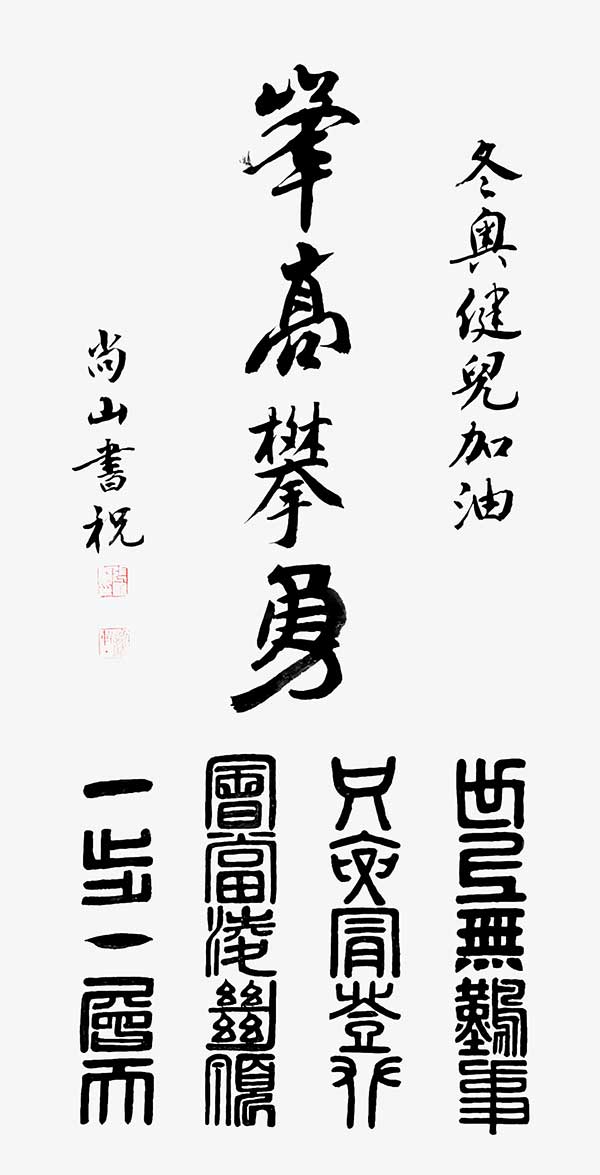 冬奧健兒加油
峯高攀勇
尚山書祝
世上無難事
只要肯登攀
會當淩絕頂
一步一層天